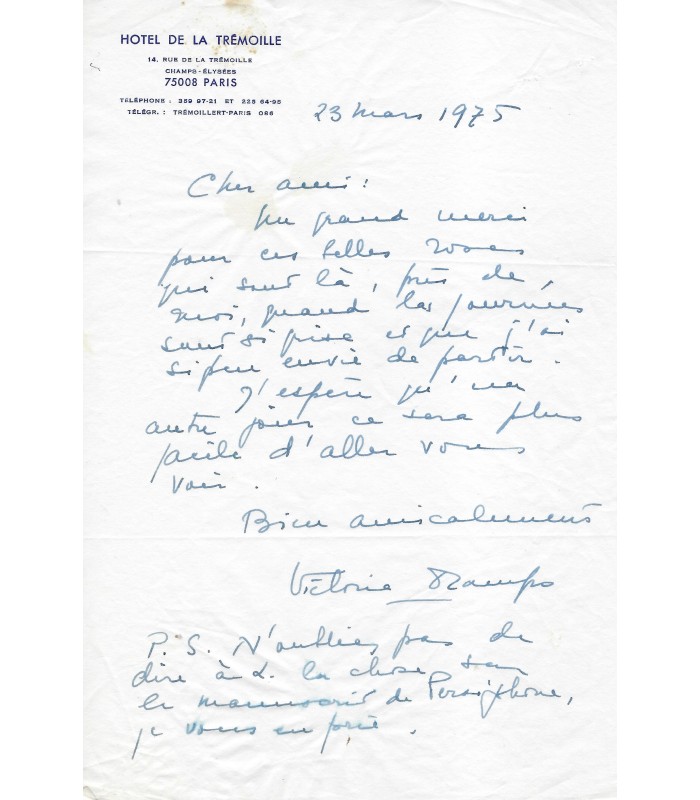 HOTEL DE LA TRÉMOILLE
14, RUE DE LA TRÉMOILLE
CHAMPS-ÉLYSÉES
75008 PARIS
TÉLÉPHONE : 359 97-21 ET 225 64-95
TÉLÉGR. : TRÉMOILLERT-PARIS 086
23 mars 1975
Cher ami :
Un grand merci
pour ces belles roses
qui sont là, près de
moi, quand les journées
sont si grise et que j'ai
si peu envie de partir.
J'espère qu'un
autre jour ce sera plus
facile d'aller vous
voir.
Bien amicalement
Victoria Ocampo
P.S. N'oubliez pas de
dire à L. la chose sur
le manuscrit de Perséphone,
je vous en prie.